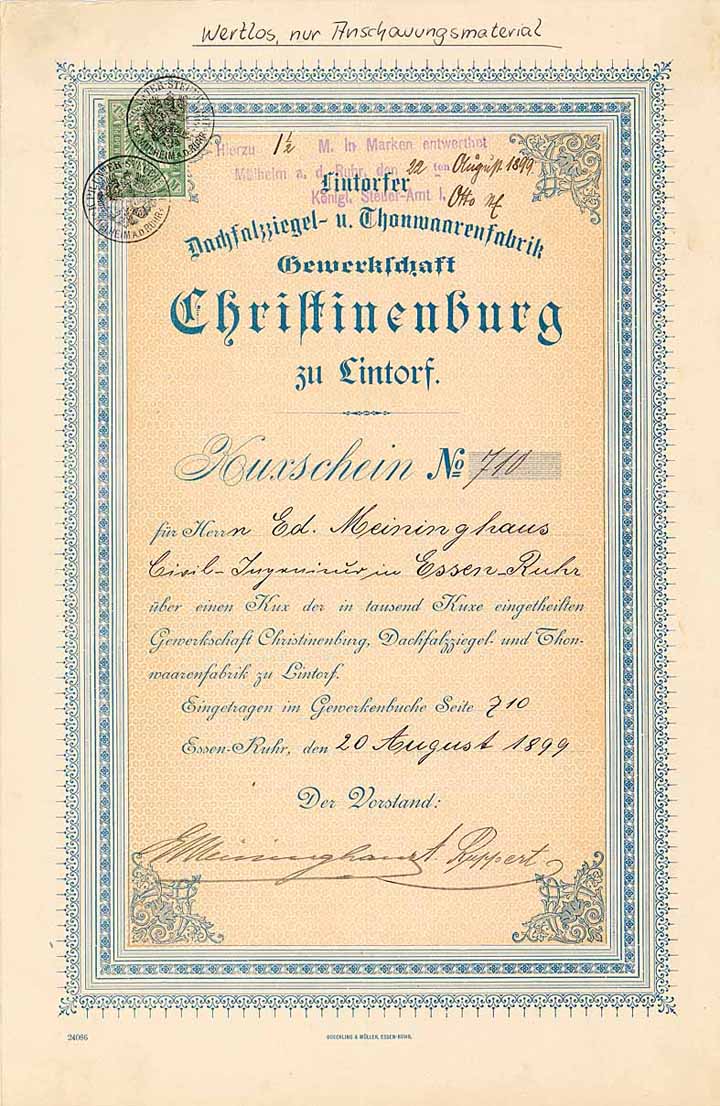 Wertlos, nur Anschauungsmaterial
Hierzu 1½ M. in Marken entwerthet
Mülheim a. d. Ruhr, den 22 ten August 1899
Königl. Steuer-Amt I.
Otto
Lintorfer
Dachfalzziegel- u. Thonwaarenfabrik
Gewerkschaft
Christinenburg
zu Lintorf.
Kuxschein No 710
für Herrn Ed. Meininghaus
Civil-Ingenieur in Essen-Ruhr
über einen Kux der in tausend Kuxe eingetheilten
Gewerkschaft Christinenburg, Dachfalzziegel- und Thon-
waarenfabrik zu Lintorf.
Eingetragen im Gewerkenbuche Seite 710
Essen-Ruhr, den 20 August 1899
Der Vorstand:
E Meininghaus A. Ruppert
24086
& MÜLLER, ESSEN-RUHR.